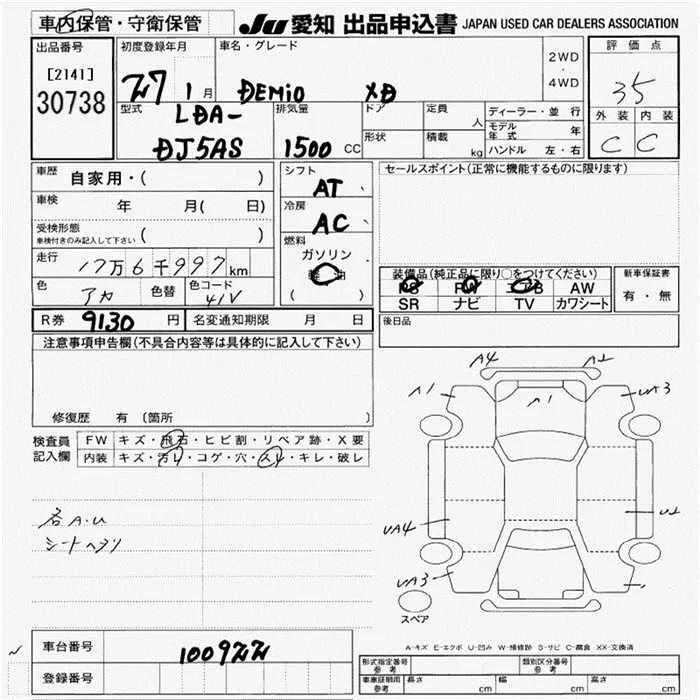 車内保管・守衛保管 JU 愛知 出品申込書 JAPAN USED CAR DEALERS ASSOCIATION
出品番号 初度登録年月 車名・グレード 評価点
[2141] 2WD
・
30738 27 1月 DEMIO XD 4WD 35
型式 LDA- 排気量 ドア 定員 人 ディーラー・並行 外装 内装
DJ5AS 1500 CC 形状 積載 kg モデル年式 年 C C
ハンドル 左・右
車歴 自家用・( ) シフト AT セールスポイント(正常に機能するものに限ります)
車検 年 月( 日) 冷房 AC
受検形態 ( )
車検付きのみ記入して下さい
燃料
走行 17万6千997km ガソリン 装備品(純正品に限り○をつけてください) 新車保証書
色 アカ 色替 色コード 41V 軽油 PS PW エアB AW 有・無
( ) SR ナビ TV カワシート
R券 9130 円 名変通知期限 月 日 後日品
注意事項申告欄(不具合内容等は具体的に記入して下さい)
修復歴 有 (箇所
A4 A2
A1 A1 UA3
検査員 FW キズ・飛石・ヒビ割・リペア跡・X要
記入欄 内装 キズ・汚レ・コゲ・穴・スレ・キレ・破レ
各A.U
シートヘタリ
UA4 U2
UA3
スペア
A-キズ E-エクボ U-凹み W-補修跡 S-サビ C-腐食 XX-交換済
車台番号 100922
登録番号
形式指定番号 参考 類別区分番号 参考
車庫証明用 参考 長さ cm 幅 cm 高さ cm